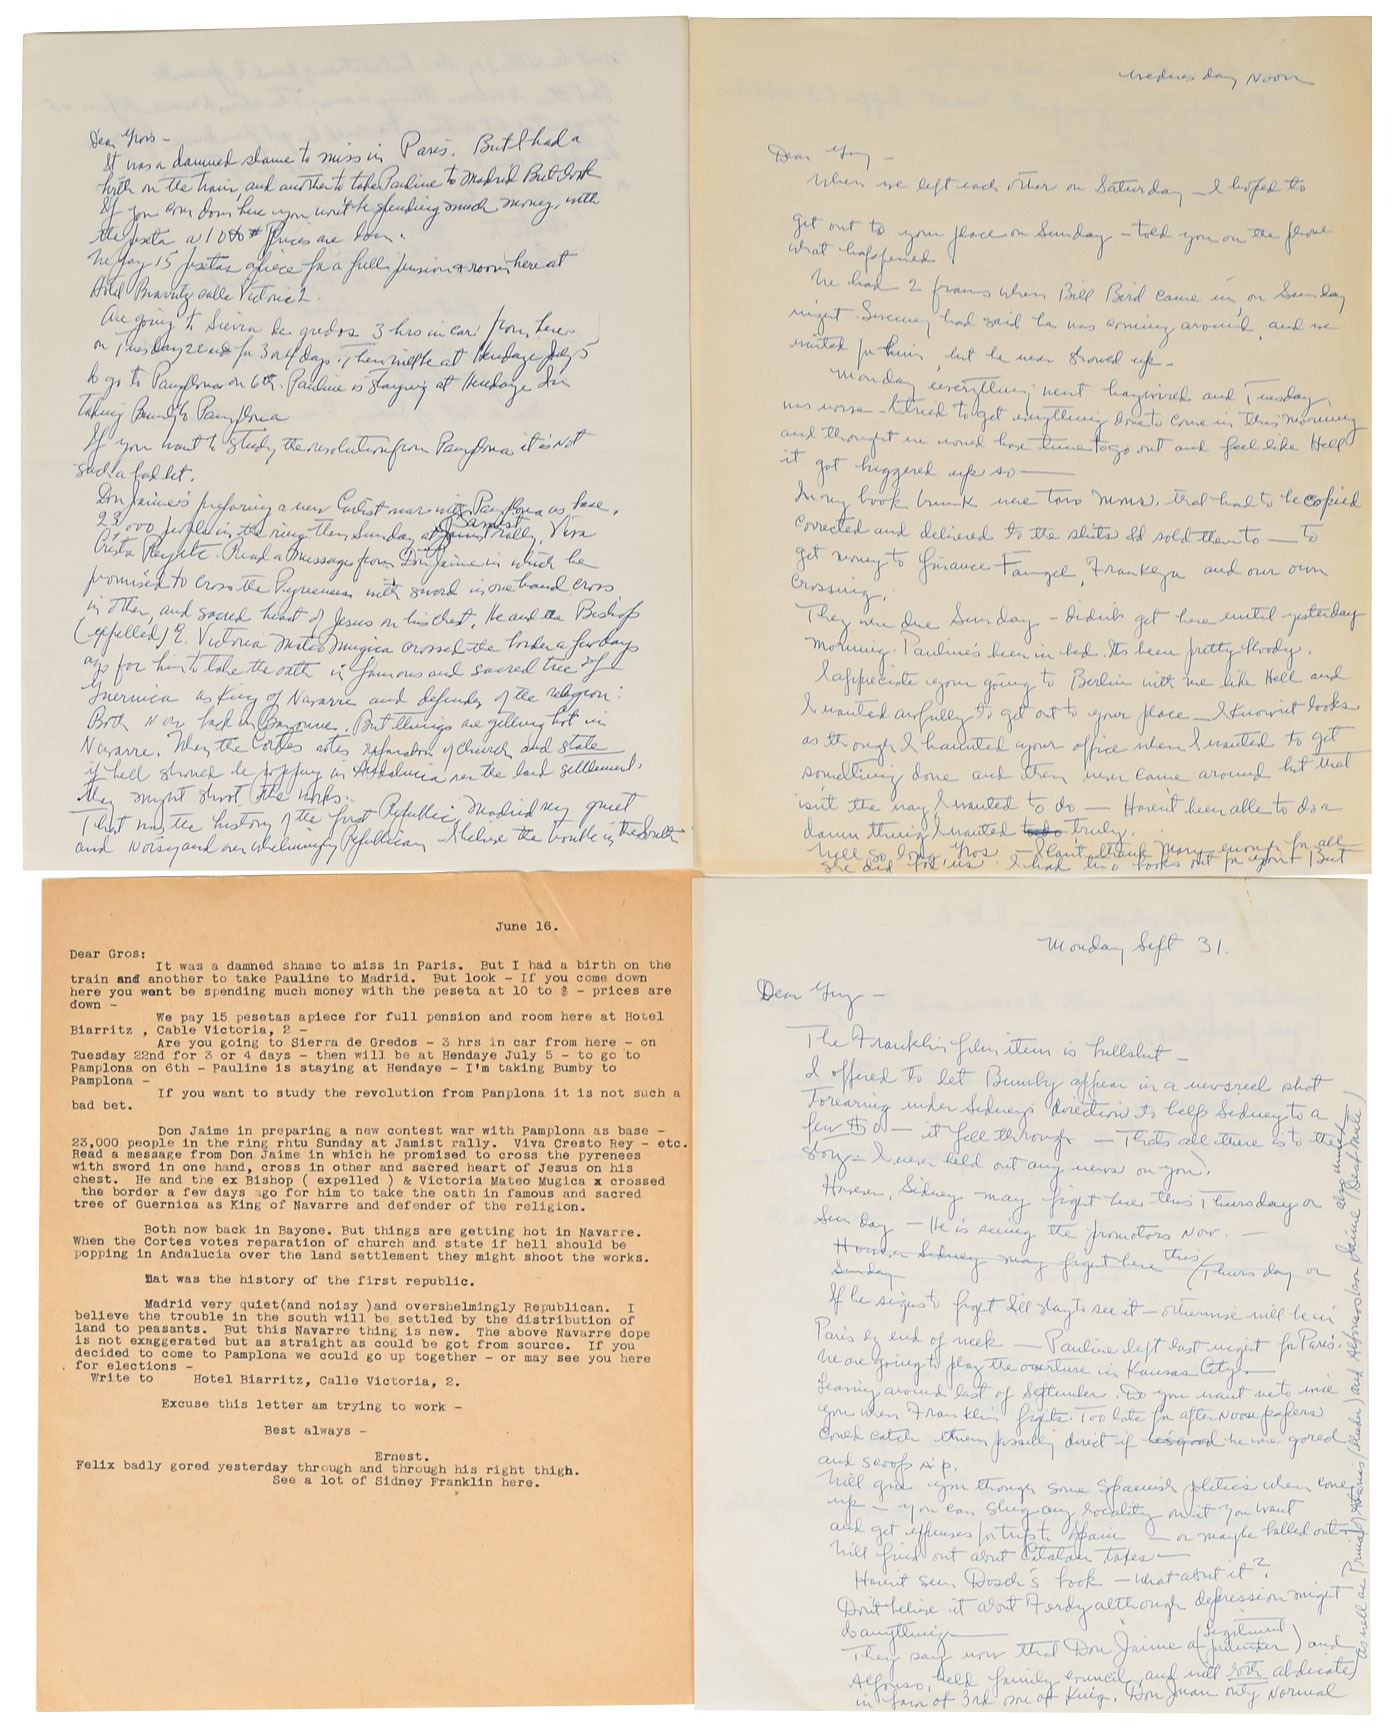 Dear Gros -
It was a damned shame to miss in Paris. But I had a
birth on the train, and another to take Pauline to Madrid But look
If you come down here you wont be spending much money, with
the peseta a 10 to # Prices are down.
We pay 15 pesetas apiece for a full pension + room here at
Hotel Biarritz calle Victoria 2.
Are going to Sierra de gredos 3 hrs in car from here
on Tuesday 22nd for 3 or 4 days. Then will be at Hendaye July 5
to go to Pamplona on 6th. Pauline is staying at Hendaye Im
taking Bumby to Pamplona
If you want to study the revolution from Pamplona it is not
such a bad bet.
Don Jaime's preparing a new Carlist war with Pamplona as base.
23,000 people in the ring there Sunday at Jamist rally, Viva
Cristo Rey etc. Read a message from Don Jaime in which he
promised to cross the Pyreneees with sword in one hand, cross
in other, and sacred heart of Jesus on his chest. He and the Bishop
(expelled) of Victoria Mateo Mugica crossed the border a few days
ago for him to take the oath in famous and sacred tree of
Guernica as King of Navarre and defender of the religion:
Both now back in Bayonne. But things are getting hot in
Navarre. When the Cortes votes separation of church and state
if hell should be popping in Andalucia over the land settlement,
they might shoot the works.
That was the history of the first Republic. Madrid very quiet
and Noisy and overwhelmingly Republican - I believe the trouble in the South
Wednesday Noon
Dear Guy -
When we left each other on Saturday - I hoped to
get out to your place on Sunday - told you on the phone
what happened.
We had 2 francs when Bill Bird came in, on Sunday
night. Sweeney had said he was coming around and we
waited for him, but he never showed up -
Monday everything went haywired and Tuesday,
was worse - tried to get everything done to come in this morning
and thought we would have time to go out and feel like Hell
it got buggered up so —
In my book trunk were two mms. that had to be copied
corrected and delivered to the shits Id sold them to — to
get money to finance Fangel, Frankeyn and our own
crossing.
They were due Sunday - didn't get here until yesterday
morning. Pauline's been in bed. Its been pretty bloody.
I appreciate your going to Berlin with me like Hell and
I wanted awfully to get out to your place - I know it looks
as though I haunted your office when I wanted to get
something done and then never came around but that
isn't the way I wanted to do - Haven't been able to do a
damn thing I wanted to do truly.
Well so long, Gros - I can't thank Mary enough for all
she did for us. I had two books out for you I but
June 16.
Dear Gros:
It was a damned shame to miss in Paris. But I had a birth on the
train and another to take Pauline to Madrid. But look - If you come down
here you wont be spending much money with the peseta at 10 to $ - prices are
down -
We pay 15 pesetas apiece for full pension and room here at Hotel
Biarritz , Cable Victoria, 2 -
Are you going to Sierra de Gredos - 3 hrs in car from here - on
Tuesday 22nd for 3 or 4 days - then will be at Hendaye July 5 - to go to
Pamplona on 6th - Pauline is staying at Hendaye - I'm taking Bumby to
Pamplona -
If you want to study the revolution from Panplona it is not such a
bad bet.
Don Jaime in preparing a new contest war with Pamplona as base -
23,000 people in the ring rhtu Sunday at Jamist rally. Viva Cresto Rey - etc.
Read a message from Don Jaime in which he promised to cross the pyrenees
with sword in one hand, cross in other and sacred heart of Jesus on his
chest. He and the ex Bishop ( expelled ) & Victoria Mateo Mugica x crossed
the border a few days ago for him to take the oath in famous and sacred
tree of Guernica as King of Navarre and defender of the religion.
Both now back in Bayone. But things are getting hot in Navarre.
When the Cortes votes reparation of church and state if hell should be
popping in Andalucia over the land settlement they might shoot the works.
Hat was the history of the first republic.
Madrid very quiet(and noisy )and overshelmingly Republican. I
believe the trouble in the south will be settled by the distribution of
land to peasants. But this Navarre thing is new. The above Navarre dope
is not exaggerated but as straight as could be got from source. If you
decided to come to Pamplona we could go up together - or may see you here
for elections -
Write to Hotel Biarritz, Calle Victoria, 2.
Excuse this letter am trying to work -
Best always -
Ernest.
Felix badly gored yesterday through and through his right thigh.
See a lot of Sidney Franklin here.
Monday Sept 31.
Dear Guy -
The Franklin film item is bullshit -
I offered to let Bumby appear in a newsreel shot
Torearing under Sidney's direction to help Sidney to a
few $0 - it fell through - Thats all there is to the
story - I never held out any news on you.
However, Sidney may fight here this Thursday or
Sunday - He is seeing the promotors now. -
However Sidney may fight here this Thursday or
Sunday
If he signs to fight I'll stay to see it - otherwise will be in
Paris by end of week - Pauline left last night for Paris.
We are going to play the overture in Kansas City -
Leaving around last of September. Do you want me to wire
you when Franklin fights. Too late for afternoon papers
could catch them possibly direct if he were gored
and scoop A.P.
Will give you though some Spanish politics when come
up - you can slug any locality on it you want
and get expenses for trip to Spain - or maybe balled out -
Will find out about Catalan tapes -
Haven't seen Dosch's book - what about it?
Don't believe it about Ferdy although depression might
do anything
They say now that Don Jaime a (legitimist pretender) and
Alfonso, held family council, and will both abdicate
in favor of 3rd son of King. Don Juan only normal
as well as Prince of Asturias (bleeder) and Alfonso's son Jaime (Deaf Mute)